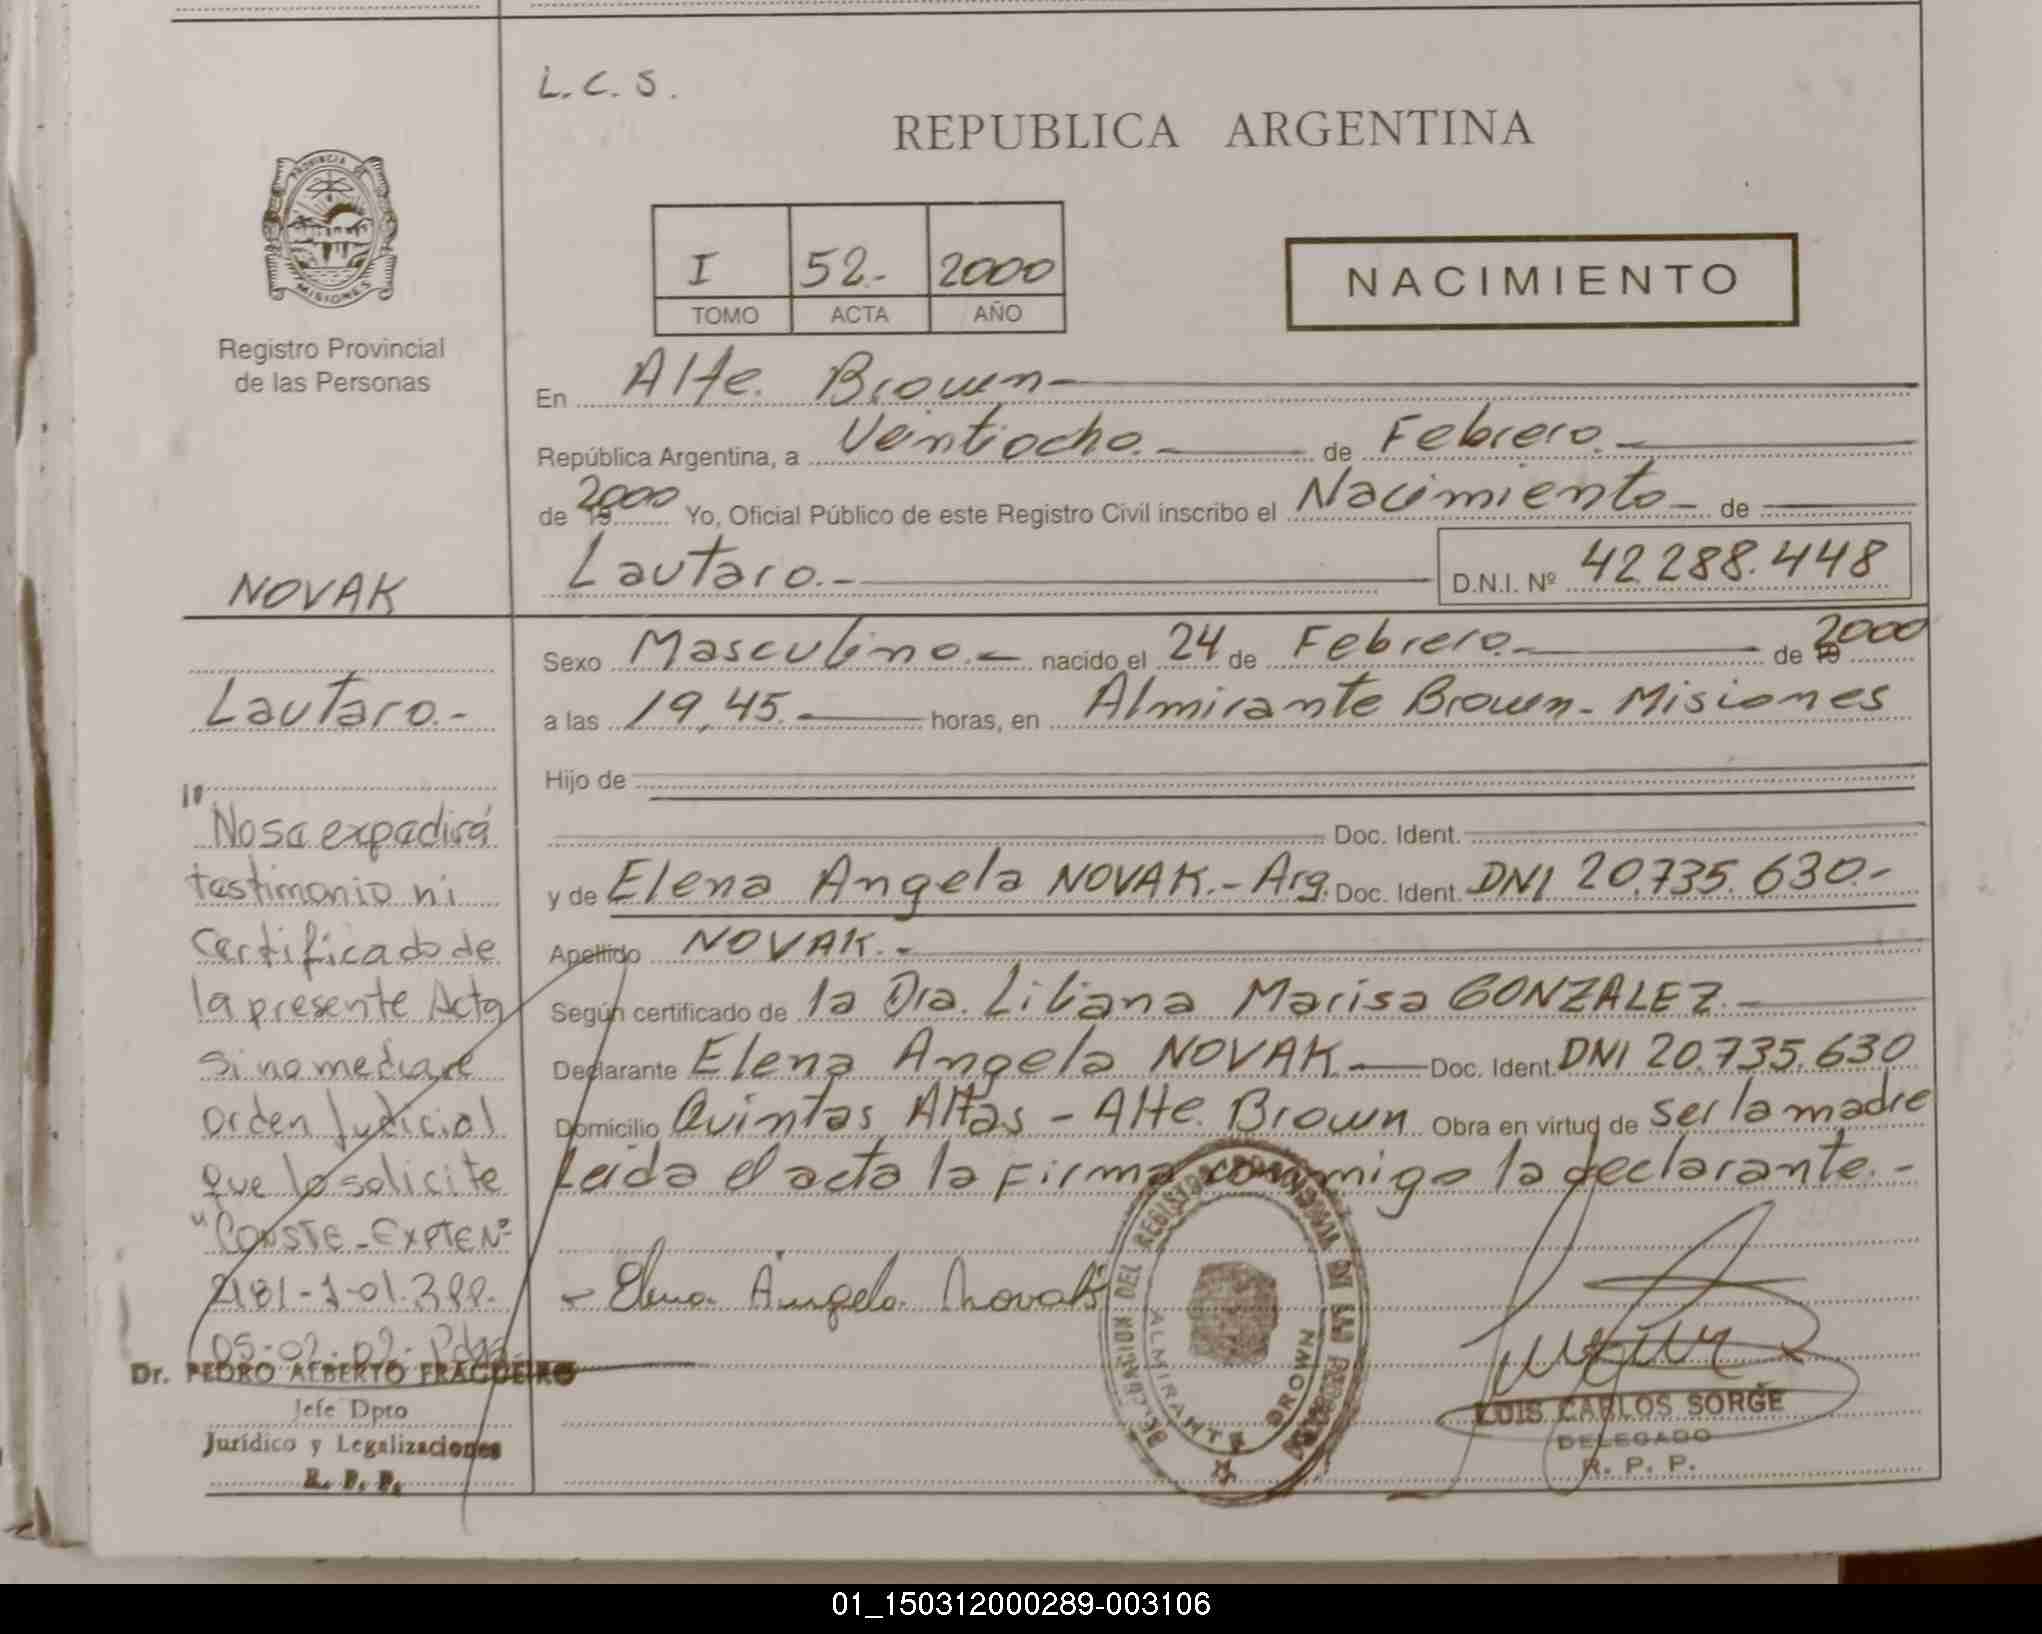 L.C.S.
REPUBLICA ARGENTINA
PROVINCIA DE
MISIONES
Registro Provincial
de las Personas
I 52.- 2000
TOMO ACTA AÑO
NACIMIENTO
En Alte. Brown
República Argentina, a Veintiocho. de Febrero.
de 19 2000 Yo, Oficial Público de este Registro Civil inscribo el Nacimiento de
Lautaro.- D.N.I. Nº 42.288.448
NOVAK
Lautaro.-
Sexo Masculino.- nacido el 24 de Febrero.- de 19 2000
a las 19,45.- horas, en Almirante Brown - Misiones
Hijo de
Doc. Ident.
y de Elena Angela NOVAK.- Arg. Doc. Ident. DNI 20.735.630.-
Apellido NOVAK.-
Según certificado de la Dra. Liliana Marisa GONZALEZ.-
Declarante Elena Angela NOVAK.- Doc. Ident. DNI 20.735.630
Domicilio Quintas Altas - Alte. Brown Obra en virtud de ser la madre
Leida el acta la firma conmigo la declarante.-
"No se expedirá
testimonio ni
Certificado de
la presente Acta
si no mediare
orden Judicial
que lo solicite
"CONSTE - EXPTE Nº
2181-J-01.
05-02-02- Pdas.
Dr. PEDRO ALBERTO FRAGUEIRO
Jefe Dpto
Jurídico y Legalizaciones
R. P. P.
- Elena Angela Novak
DELEGACION DEL REGISTRO PROVINCIAL DE LAS PERSONAS
ALMIRANTE BROWN
LUIS CARLOS SORGE
DELEGADO
R. P. P.
01_150312000289-003106